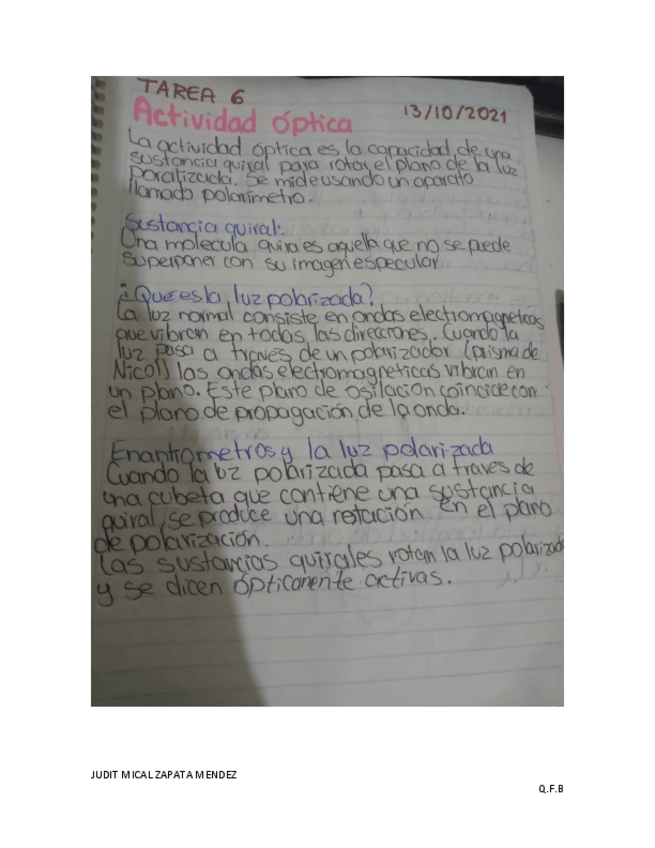 TAREA 6
13/10/2021
Actividad óptica
La actividad óptica es la capacidad de una
sustancia quiral para rotar el plano de la luz
poralizada. Se mide usando un aparato
llamado polarímetro.
Sustancia quiral:.
Una molecula quira es aquella que no se puede
superponer con su imagen especular
¿Que es la luz polarizada?
La luz normal consiste en ondas electromagneticas
que vibran en todas las direcciones. Cuando la
luz pasa a traves de un polarizador (prisma de
Nicol) las ondas electromagneticas vibran en
un plano. Este plano de osilación coincide con
el plano de propagación de la onda.
Enantrometros y la luz polarizada
Cuando la uz polarizada pasa a traves de
una cubeta que contiene una sustancia
quiral, se produce una rotación en el plano
de polarización.
Las sustancias quirales rotan la luz polarizada
y se dicen ópticamente activas.
JUDIT MICAL ZAPATA MENDEZ
Q.F.B